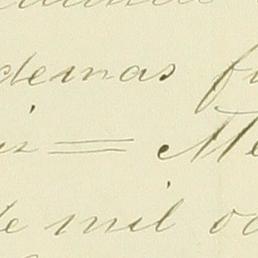 demas fi
is = Me
de mil oc